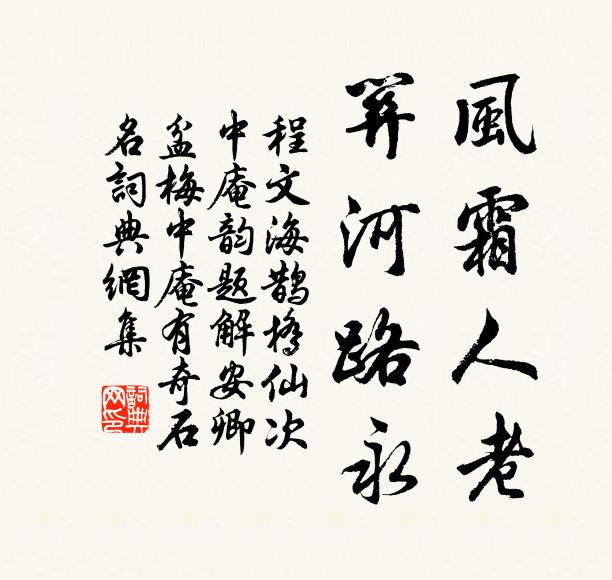 風霜人老
關河路永
程文海鵲橋仙次
中庵韵題解安卿
盆梅中庵有奇石
名詞典網集
詞典
网印